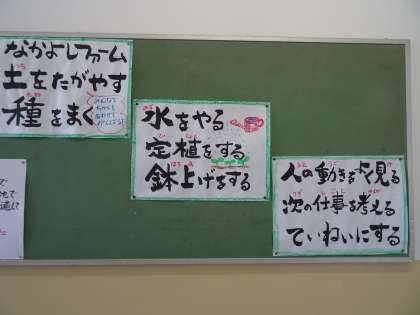 なかよしファーム
土をたがやす
種をまく
みんなで
ちからを
あわせて
がんばろう!
水をやる
定植をする
鉢上げをする
人の動きをよく見る
次の仕事を考える
ていねいにする